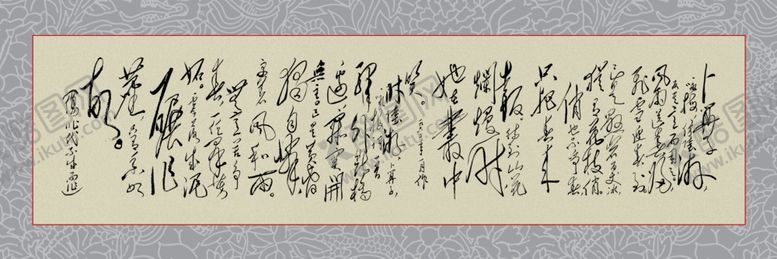 卜算子
咏梅
风雨送春归
飞雪迎春到 已
是悬崖百丈冰
犹有花枝俏
俏 也不争春
只把春来
报 待到山花
烂漫时
她在丛中
笑。
驿外断桥
边 寂寞开
无主 已是黄昏
独自愁
更著风和雨
无意苦争
春 一任群芳
妒 零落成泥
碾作
尘 只有香如
故。